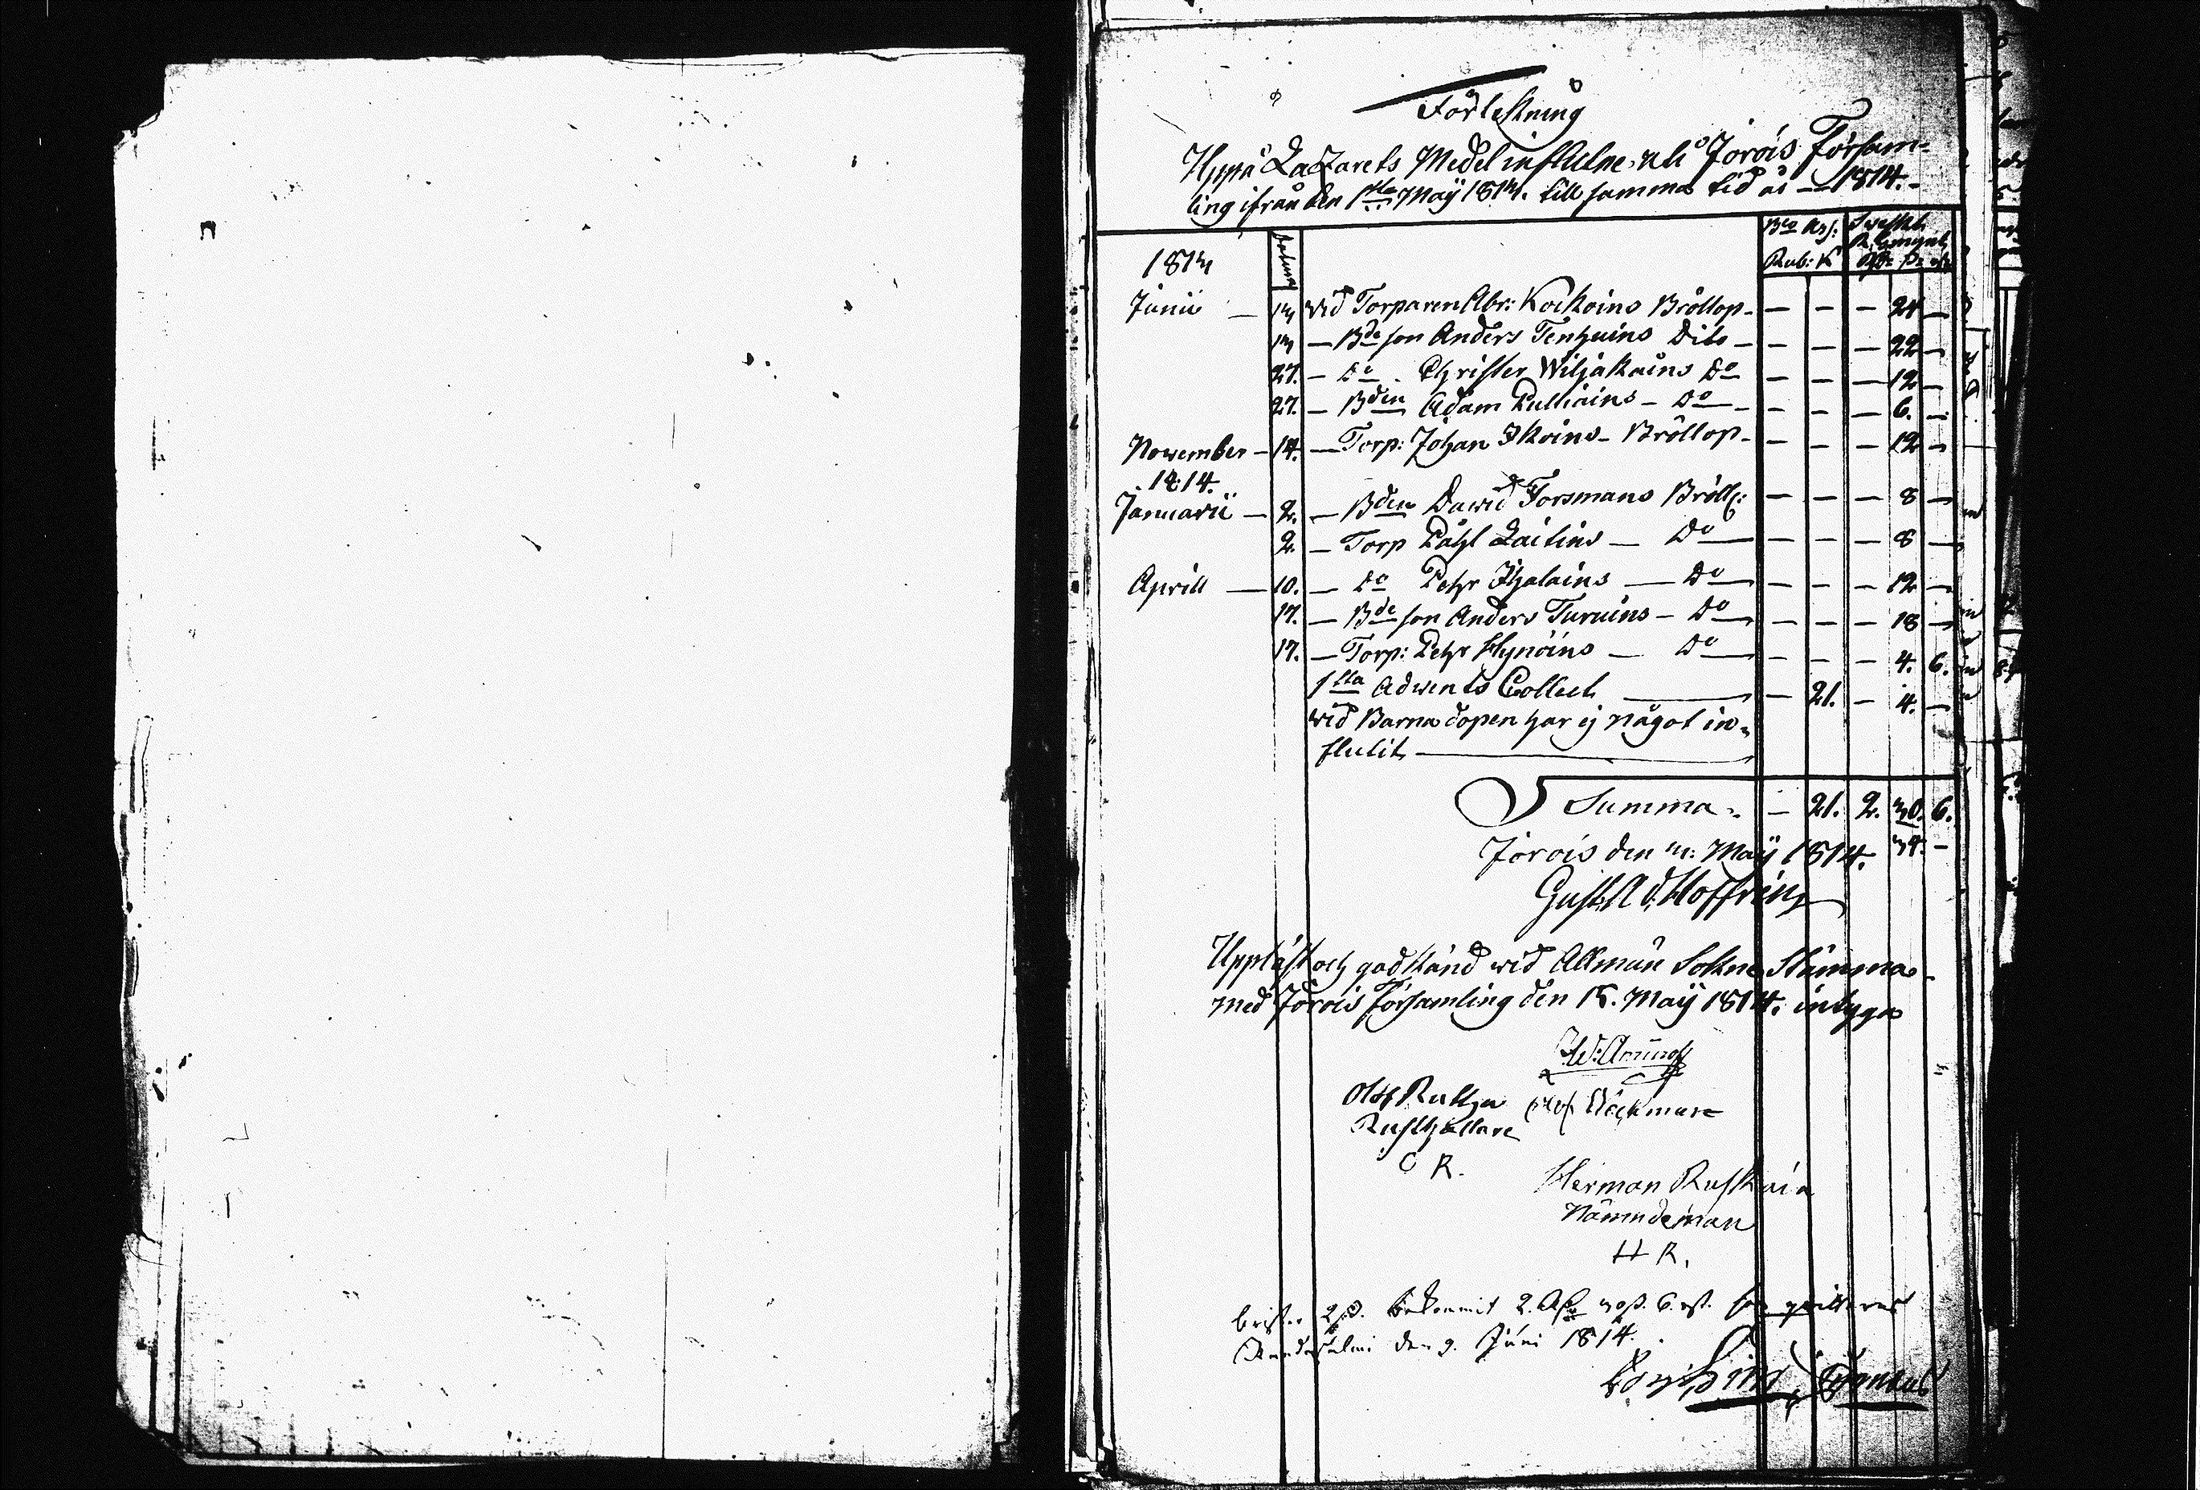 Förtekning
Uppå Lazarets Medel influtne uti Jorois Församling
ling ifrån den 1sta Maÿ 1813. till samma tid år — 1814.
1813 Datum Bco Ass: Rub: K Swenskt R. Gmynt Rdr ß rst
Junii — 13 wid Torparen Abr: Koikoins Bröllop — — — 24 —
13 — Bde son Anders Tenhuins Dito — — — — 22 —
27. — Do Christer Wiljakains Do — — — 12 —
27. — Bden Adam Pulliains — Do — — — — 6. —
November — 14. — Torp: Johan Ikoins — Bröllop — — — — 12 —
1814.
Januarii — 2. — Bden Dawid Forsmans Bröll: — — — 8 —
2. — Torp Påhl Laitins — Do — — — 8 —
Aprill — 10. — Do Pehr Ihalains — Do — — — 12 —
17. — Bde son Anders Turuins — Do — — — 18 —
17. — Torp: Pehr Hynöins — Do — — — 4. 6.
1sta Adwents Collect — — 21. — 4. —
wid Barna dopen har ej något in=
flutit —
Summa — 21. 2. 30. 6.
Jorois den 3: Maÿ 1814. 34. —
Gust. Ad. Hoffrén
Uppläst och godkänd wid Allmän Sokne Stämma
med Jorois Församling den 15. Maÿ 1814. intyga
Olof Rutha Olof Häckman
Rusthållare
O R.
Herman Ruskain
Nämndeman
H R.
2 ß. bekommit 2. Rdr 30 ß. 6. rst. som quitteras
Randasalmi den 9. Juni 1814.